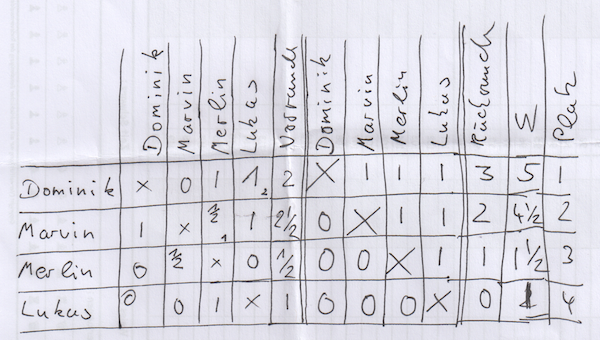 Dominik Marvin Merlin Lukas Vorrunde Dominik Marvin Merlin Lukas Rückrunde Σ Platz
Dominik x 0 1 1 2 X 1 1 1 3 5 1
Marvin 1 x ½ 1 2½ 0 X 1 1 2 4½ 2
Merlin 0 ½ x 0 ½ 0 0 X 1 1 1½ 3
Lukas 0 0 1 x 1 0 0 0 X 0 1 4